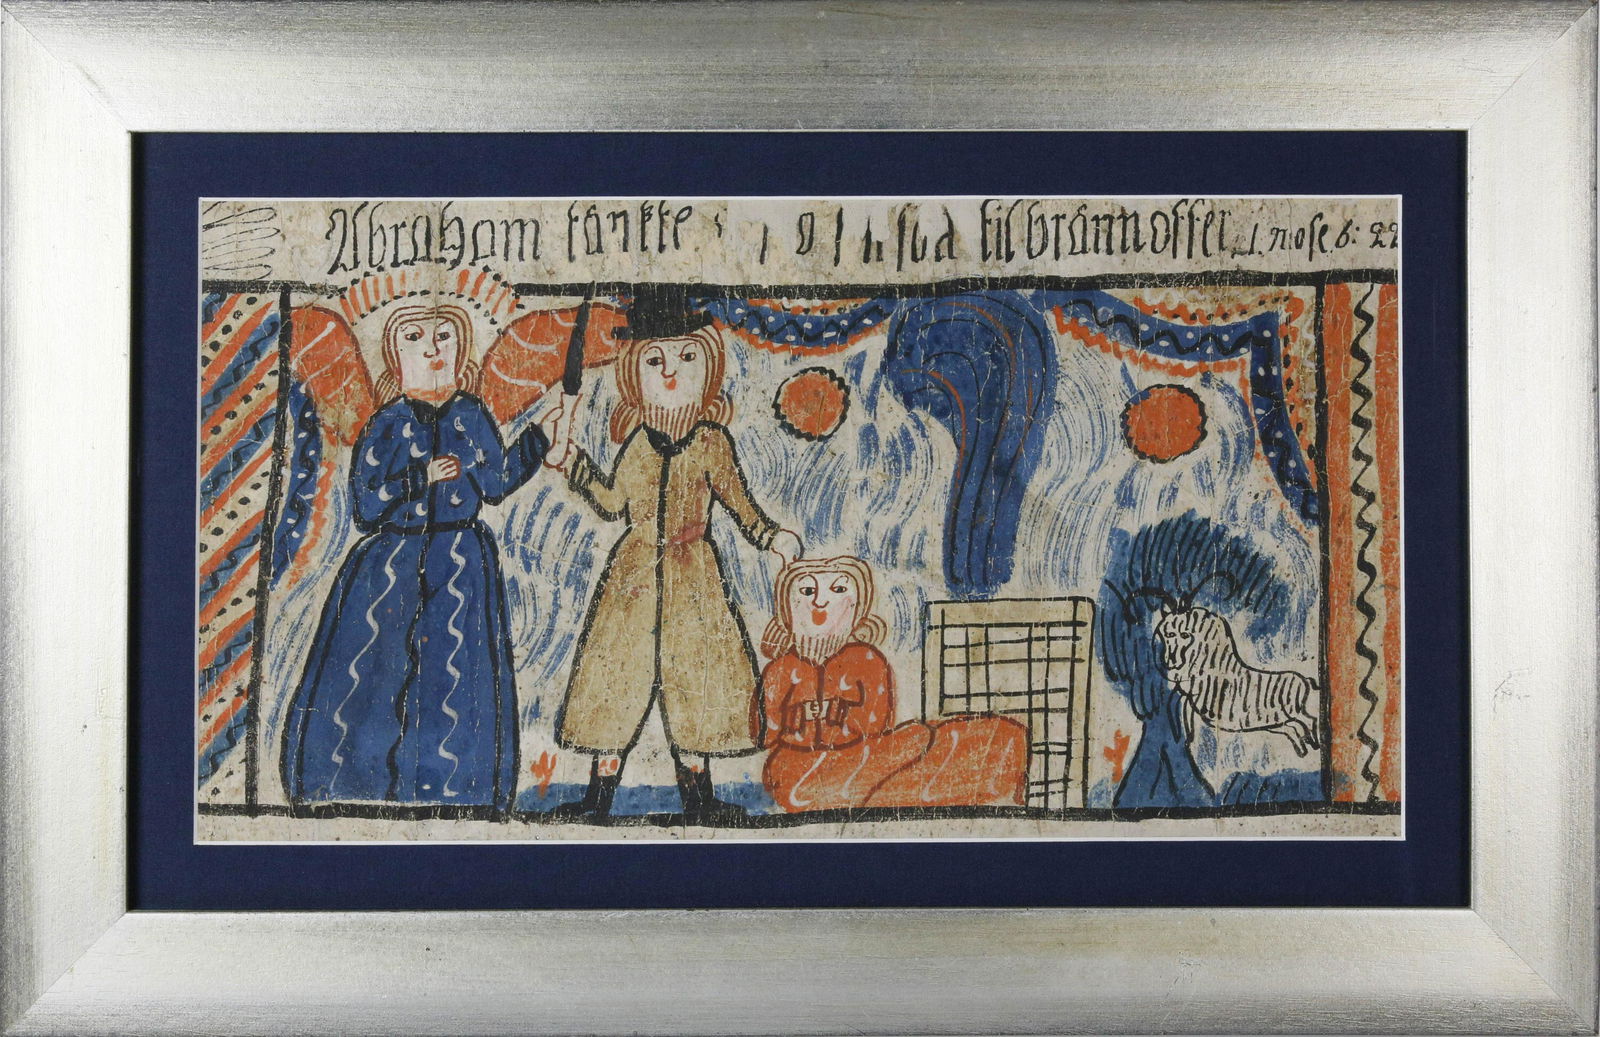 Abraham tänkte til brännoffer 1. mose b: 22